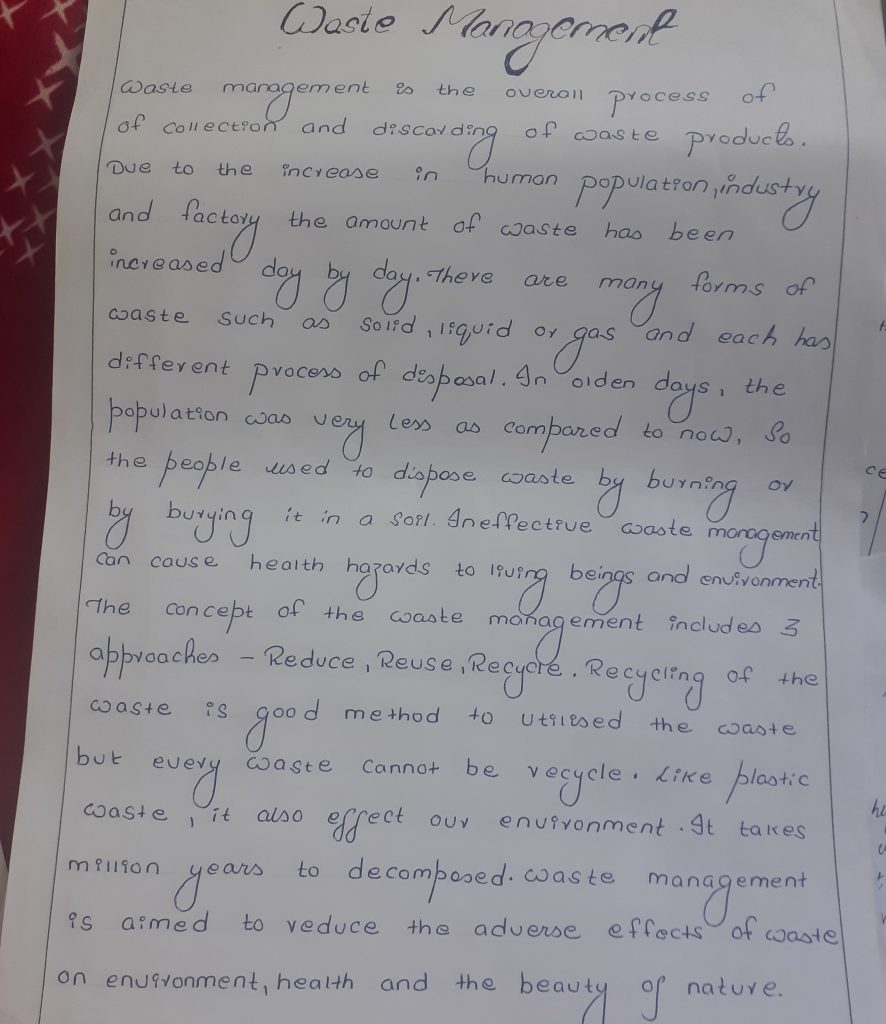 Waste Management
Waste management is the overall process of
of collection and discarding of waste products.
Due to the increase in human population, industry
and factory the amount of waste has been
increased day by day. There are many forms of
waste such as solid, liquid or gas and each has
different process of disposal. In olden days, the
population was very less as compared to now, So
the people used to dispose waste by burning or
by burying it in a soil. Ineffective waste management
can cause health hazards to living beings and environment.
The concept of the waste management includes 3
approaches - Reduce, Reuse, Recycle. Recycling of the
waste is good method to utilised the waste
but every waste cannot be recycle. Like plastic
waste, it also effect our environment. It takes
million years to decomposed. Waste management
is aimed to reduce the adverse effects of waste
on environment, health and the beauty of nature.